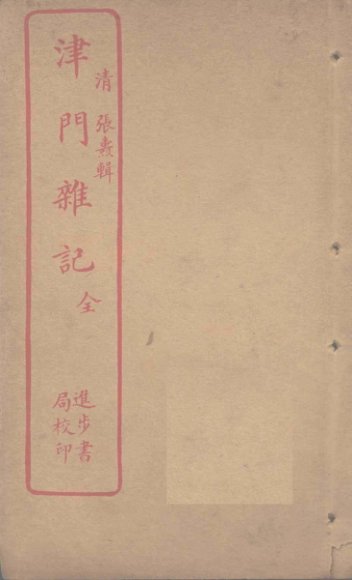 清 張燾輯
津門雜記 全
進步書
局校印